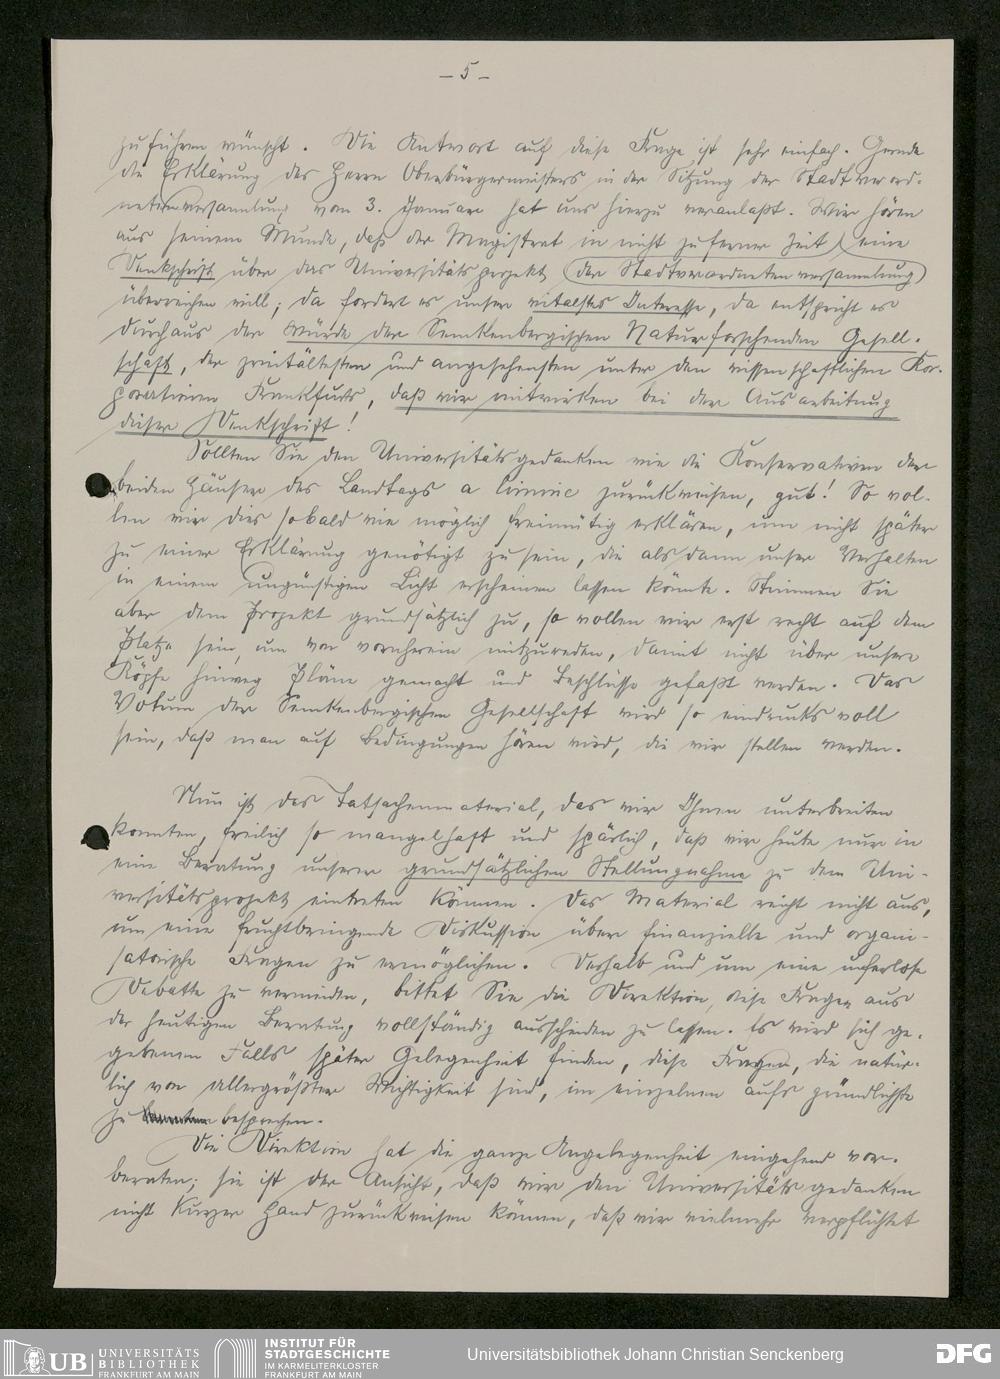 – 5 –
zuführen wünscht. Die Antwort auf diese Frage ist sehr einfach. Gerade
die Erklärung des Herrn Oberbürgermeisters in der Sitzung der Stadtverord-
netenversammlung vom 3. Januar hat uns hierzu veranlaßt. Wir hören
aus seinem Munde, daß der Magistrat in nicht zu ferner Zeit eine
Denkschrift über das Universitätsprojekt (der Stadtverordnetenversammlung)
überreichen will; da fordert es unser vitalstes Interesse, da entspricht es
durchaus der Würde der Senckenbergischen Naturforschenden Gesell-
schaft, der zweitältesten und angesehensten unter den wissenschaftlichen Kor-
porationen Frankfurts, daß wir mitwirken bei der Ausarbeitung
dieser Denkschrift!
Sollten Sie den Universitätsgedanken wie die Konservativen der
beiden Häuser des Landtags a limine zurückweisen, gut! So wol-
len wir dies sobald wie möglich freimütig erklären, um nicht später
zu einer Erklärung genötigt zu sein, die alsdann unser Verhalten
in einem ungünstigen Licht erscheinen lassen könnte. Stimmen Sie
aber dem Projekt grundsätzlich zu, so wollen wir erst recht auf dem
Platze sein, um von vornherein mitzureden, damit nicht über unsere
Köpfe hinweg Pläne gemacht und Beschlüsse gefaßt werden. Das
Votum der Senckenbergischen Gesellschaft wird so eindrucksvoll
sein, daß man auf Bedingungen hören wird, die wir stellen werden.
Nun ist das Tatsachenmaterial, das wir Ihnen unterbreiten
konnten, freilich so mangelhaft und spärlich, daß wir heute nur in
eine Beratung unserer grundsätzlichen Stellungnahme zu dem Uni-
versitätsprojekt eintreten können. Das Material reicht nicht aus,
um eine fruchtbringende Diskussion über finanzielle und organi-
satorische Fragen zu ermöglichen. Deshalb und um eine uferlose
Debatte zu vermeiden, bittet Sie die Direktion, diese Fragen aus
der heutigen Beratung vollständig ausscheiden zu lassen. Es wird sich ge-
gebenen Falls später Gelegenheit finden, diese Fragen, die natür-
lich von allergrößter Wichtigkeit sind, im einzelnen aufs gründlichste
zu besprechen.
Die Direktion hat die ganze Angelegenheit eingehend vor-
beraten; sie ist der Ansicht, daß wir den Universitätsgedanken
nicht kurzer Hand zurückweisen können, daß wir vielmehr verpflichtet
UB UNIVERSITÄTS
BIBLIOTHEK
FRANKFURT AM MAIN
INSTITUT FÜR
STADTGESCHICHTE
IM KARMELITERKLOSTER
FRANKFURT AM MAIN
Universitätsbibliothek Johann Christian Senckenberg
DFG